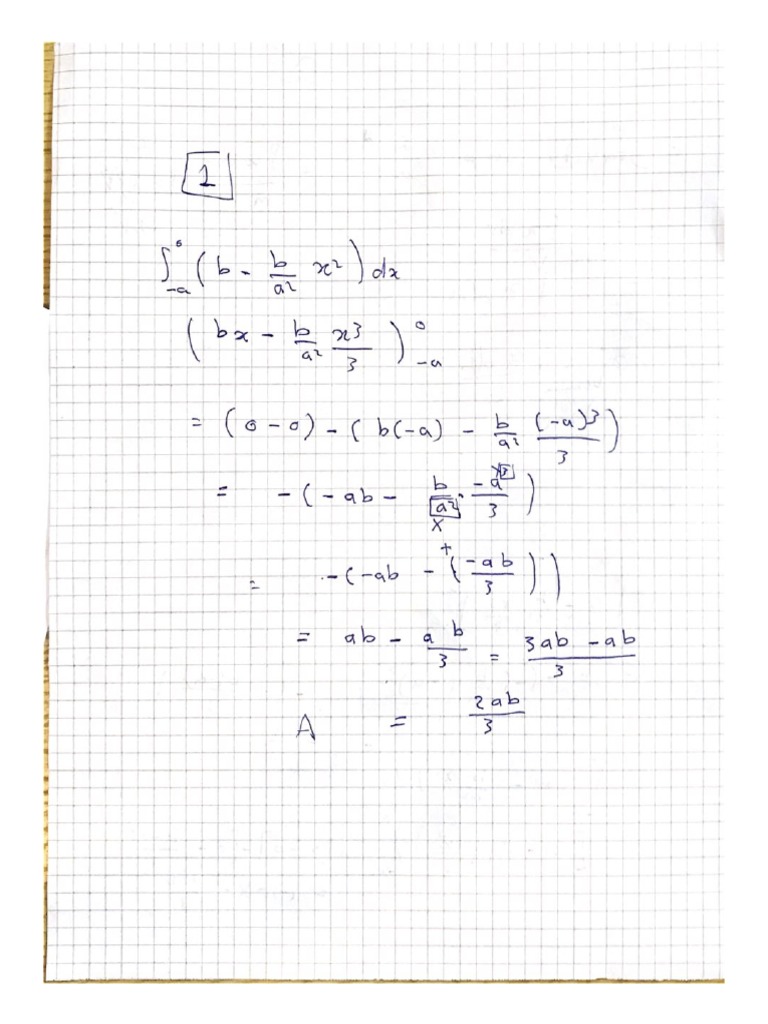 1
∫₋ₐ⁰ (b - b/a² x²) dx
(bx - b/a² x³/3)₋ₐ⁰
= (0 - 0) - (b(-a) - b/a² (-a)³/3)
= -(-ab - b/a² · -a³/3)
= -(-ab -⁺ (-ab/3))
= ab - ab/3 = 3ab - ab/3
A = 2ab/3